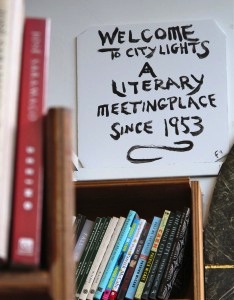 WELCOME
TO CITY LIGHTS
A
LITERARY
MEETINGPLACE
SINCE 1953
JOSÉ SARAMAGO